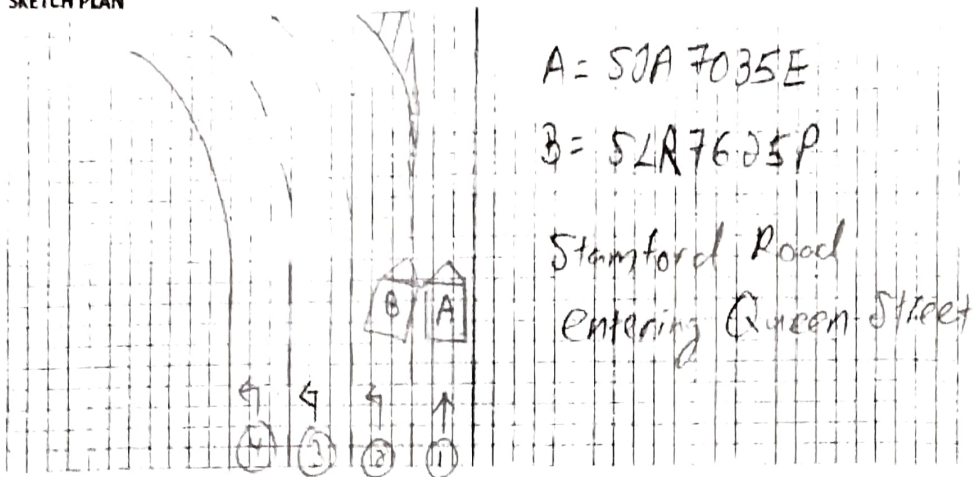 SKETCH PLAN
A = SJA 7035E
B = SLR7625P
Stamford Road
entering Queen Street
B A
4 3 2 1